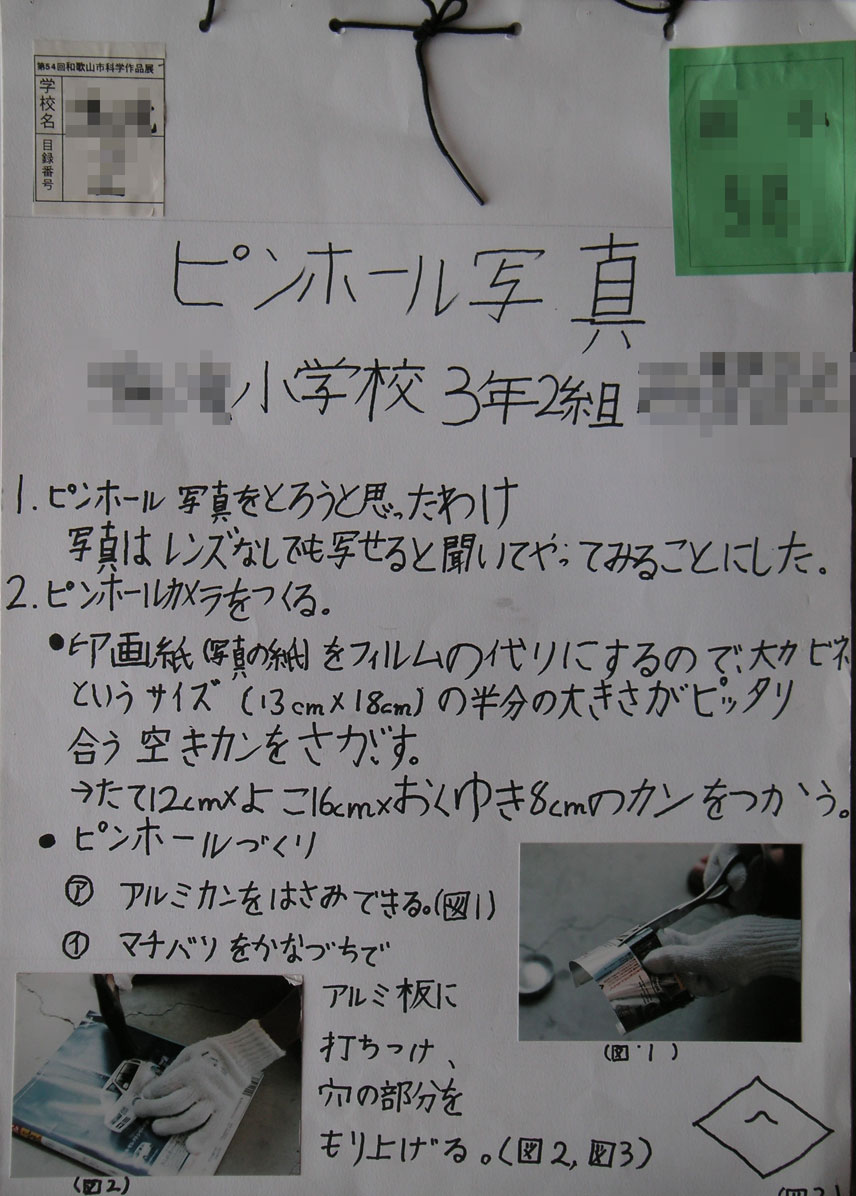 第54回和歌山市科学作品展
学校名
目録番号
ピンホール写真
小学校 3年2組
1. ピンホール 写真をとろうと思ったわけ
写真は レンズなしでも写せると聞いてやってみることにした。
2. ピンホールカメラをつくる。
●印画紙(写真の紙)をフィルムの代りにするので、大カビネ
というサイズ (13cm×18cm)の半分の大きさがピッタリ
合う 空きカンをさがす。
→たて12cm×よこ16cm×おくゆき8cmのカンをつかう。
● ピンホールづくり
㋐ アルミカンをはさみできる。(図1)
㋑ マチバリをかなづちで
アルミ板に
打ちつけ、
穴の部分を
もり上げる。(図2,図3)
(図・1)
(図2)